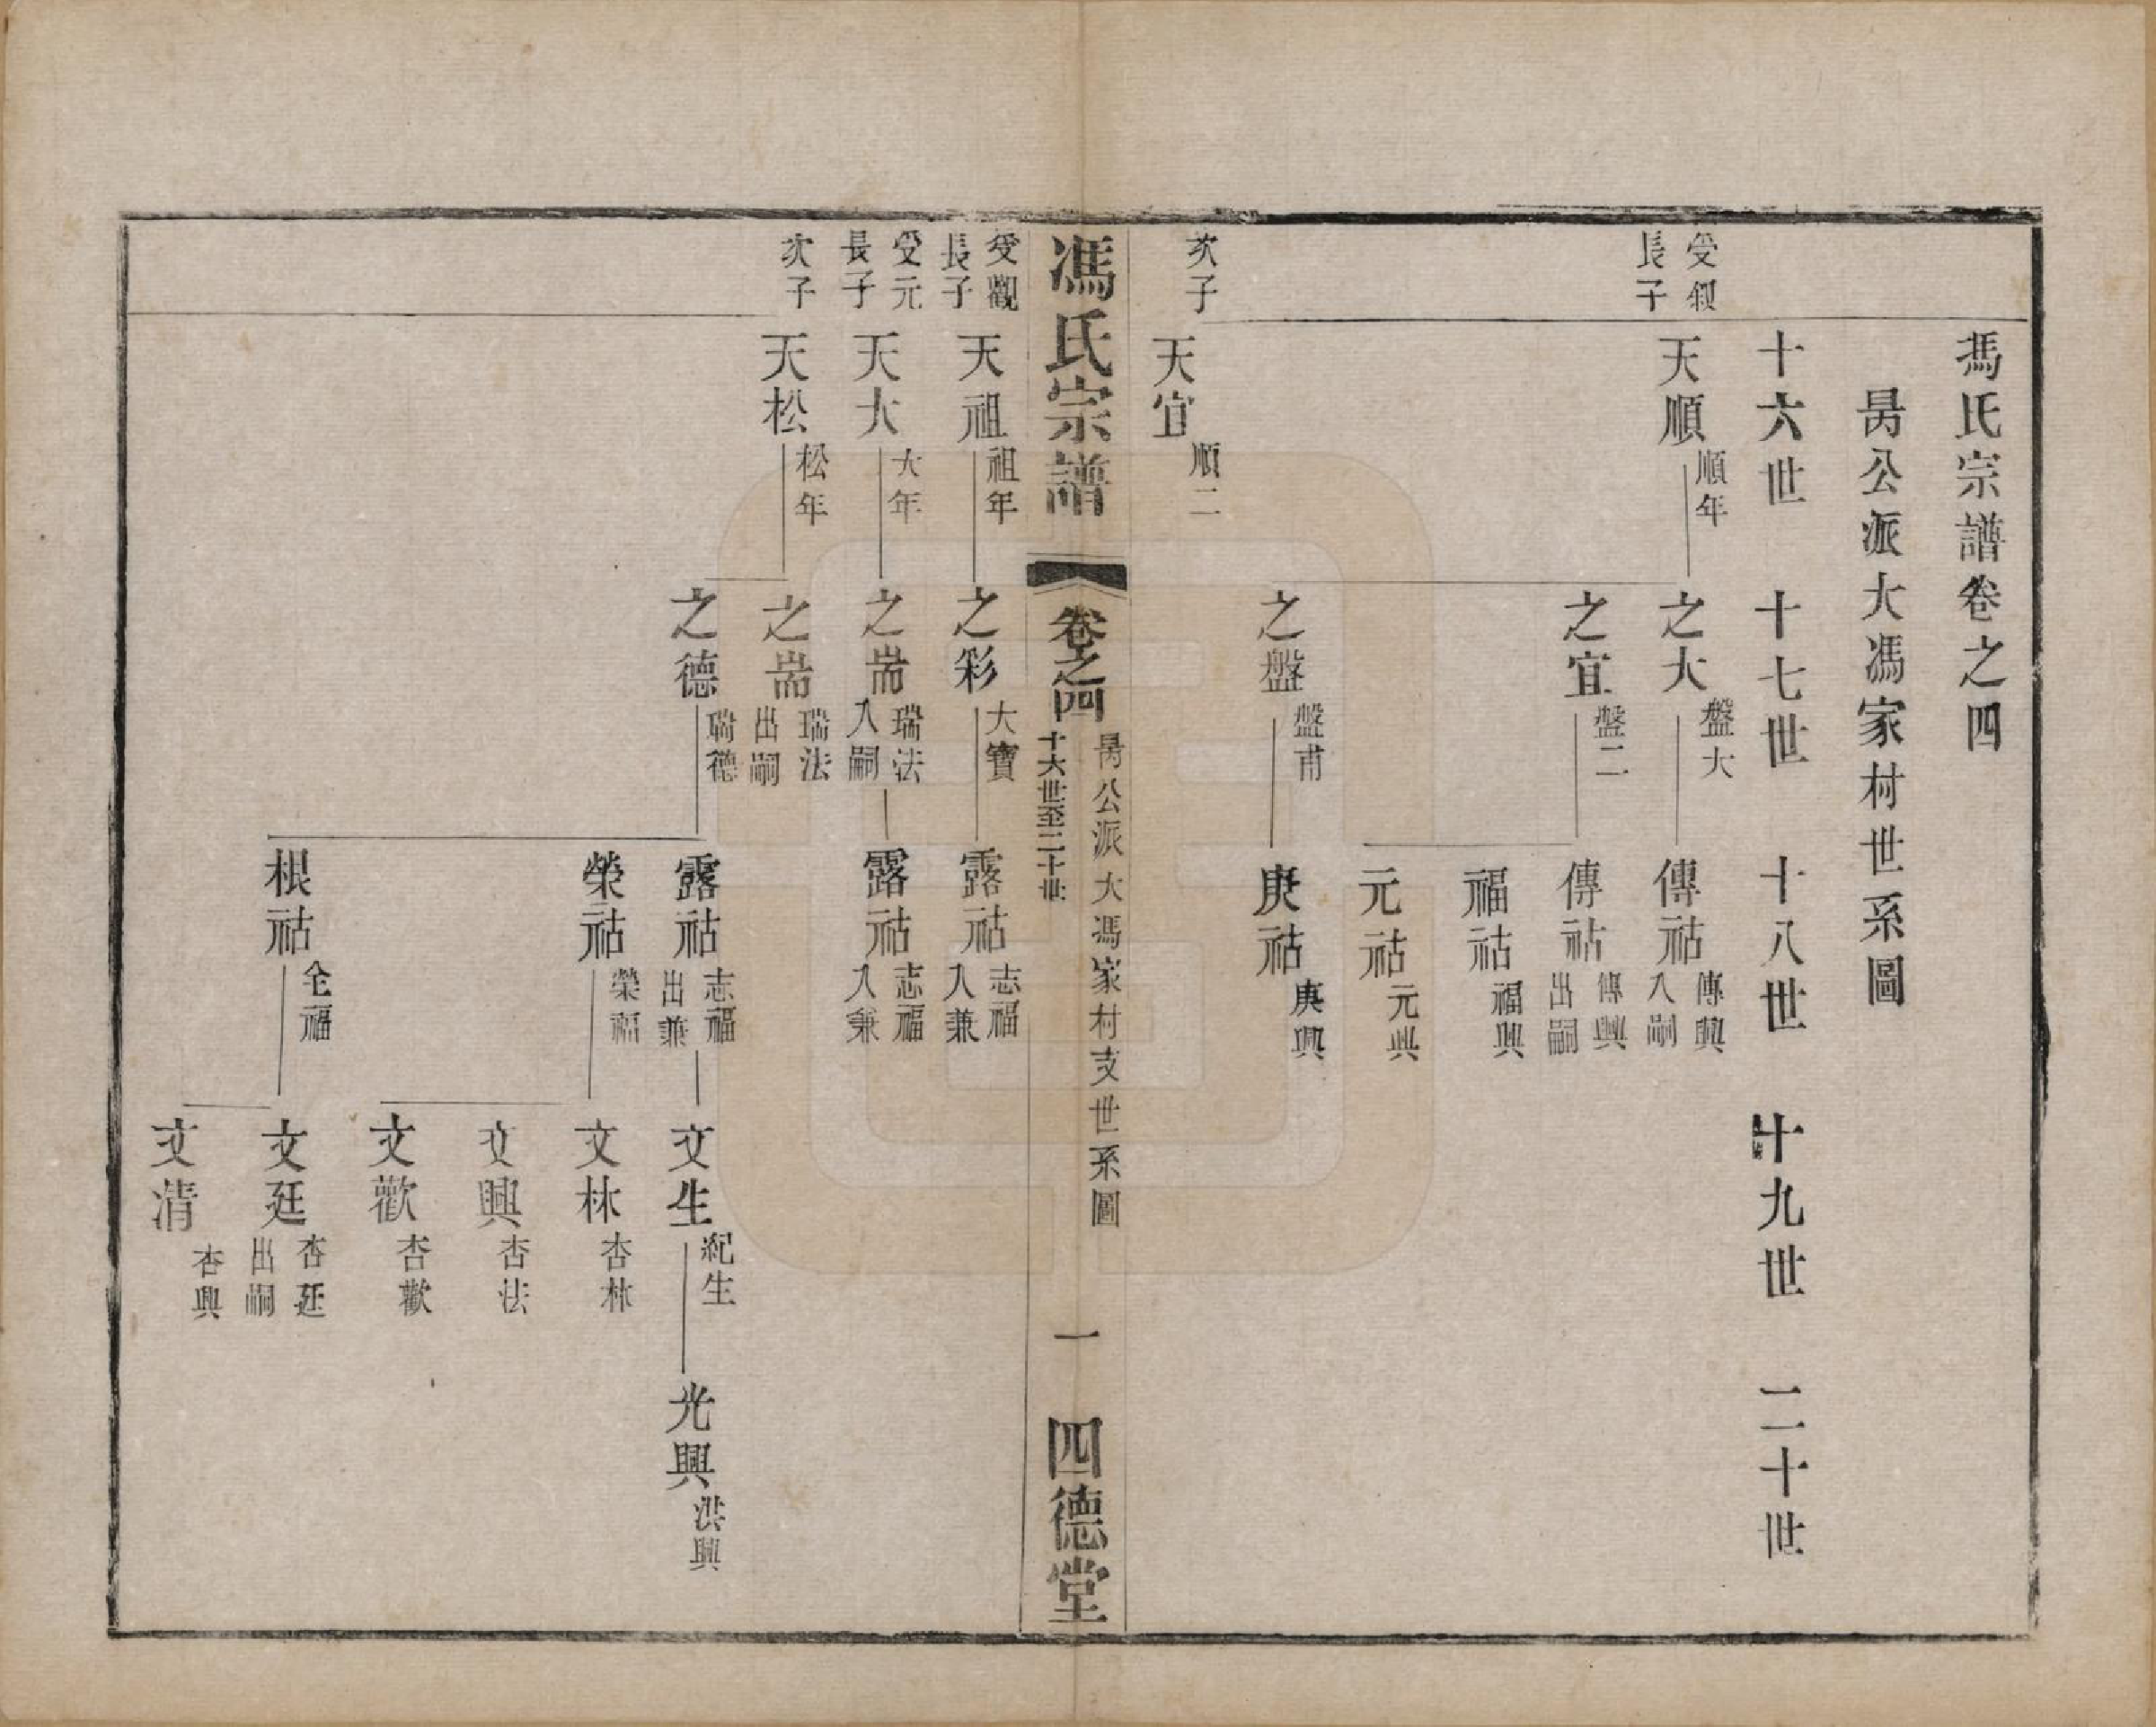 馮氏宗譜卷之四
勗公派大馮家村世系圖
十六世 十七世 十八世 十九世 二十世
受覲長子
天順 順年
之大 盤大
傳祜 傳興 入嗣
之宜 盤二
傳祜 傳興 出嗣
福祜 福興
元祜 元興
之盤 盤甫
庚祜 庚興
次子
天宜 順二
馮氏宗譜 卷之四 勗公派大馮家村支世系圖 十六世至二十世 一 四德堂
受觀長子
天祖 祖年
之彩 大寶
露祜 志福 入兼
受元長子
天大 大年
之耑 瑞法 入嗣
露祜 志福 入兼
次子
天松 松年
之耑 瑞法 出嗣
之德 瑞德
露祜 志福 出兼
文生 紀生
光興 洪興
榮祜 榮福
文林 杏林
文興 杏法
文歡 杏歡
根祜 全福
文廷 杏廷 出嗣
文清 杏興